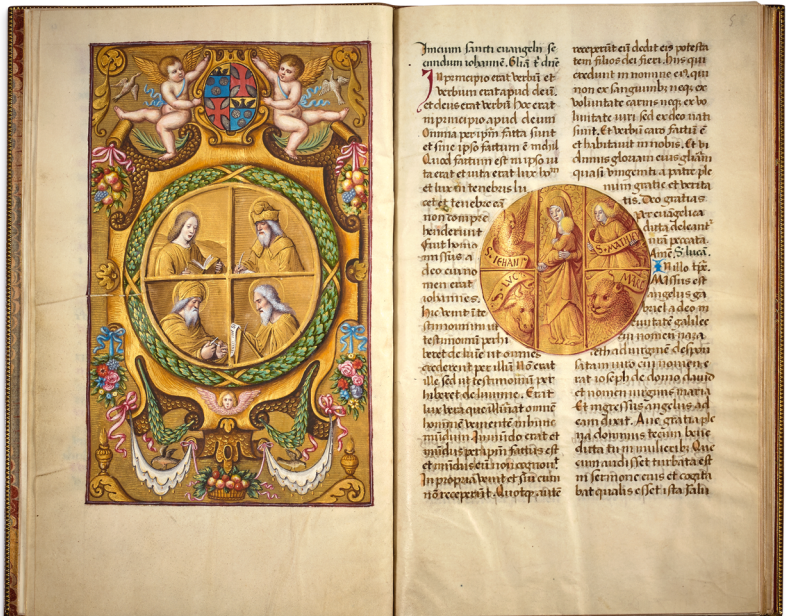 Inicium sancti euangelii se
cundum iohannē. Gliā t̄ dn̄e
In principio erat verbū et
verbum erat apud deū.
et deus erat verbū hoc erat
in principio apud deum
Omnia per ipm̄ facta sunt
et sine ipso factum ē nichil
Quod factum est in ipso ui
ta erat et uita erat lux hoīm
et lux in tenebris lu
cet et tenebre eā
non compre
henderunt
fuit homo
missus a
deo cui no
men erat
iohannes.
hic venit ī te
stimonium ut
testimoniū perhi
beret de lumīe ut omnes
crederent per illū Nō erat
ille. sed ut testimoniū per
hiberet de lumine. Erat
lux vera que illuīat omnē
hominē venientē in hunc
mūdum In mūdo erat et
mūdus per ipm̄ factus est
et mūdus eū non cognouit
In propria venit et sui eum
nō receperūt. Quotqt autē
receperūt eū dedit eis potesta
tem filios dei fieri. his qui
credunt in nomine eiꝰ. qui
non ex sanguinibꝫ neqꝫ ex
voluntate carnis neqꝫ ex vo
luntate uiri sed ex deo nati
sunt. Et verbū caro factū ē
et habitauit in nobis. Et vi
dimus gloriam eius gliam
quasi vnigeniti a patre ple
num gratie et verita
tis. Deo gratias
Per euāgelica
dicta deleant
nr̄a peccata.
Amē. S. lucā.
In illo tpr̄e.
Missus est
angelus ga
briel a deo in
ciuitatē galilee
cui nomen naza
reth ad uirginē despon
satam uiro cui nomen e
rat ioseph de domo dauid
et nomen uirginis maria
Et ingressus angelus ad
eam dixit. Aue gratia ple
na dominus tecum bene
dicta tu in mulieribꝫ Que
cum audisset turbata est
in sermone eius et cogita
bat qualis esset ista salu
S. IEHAN
S. MATHIEV
S. LVC
MARC